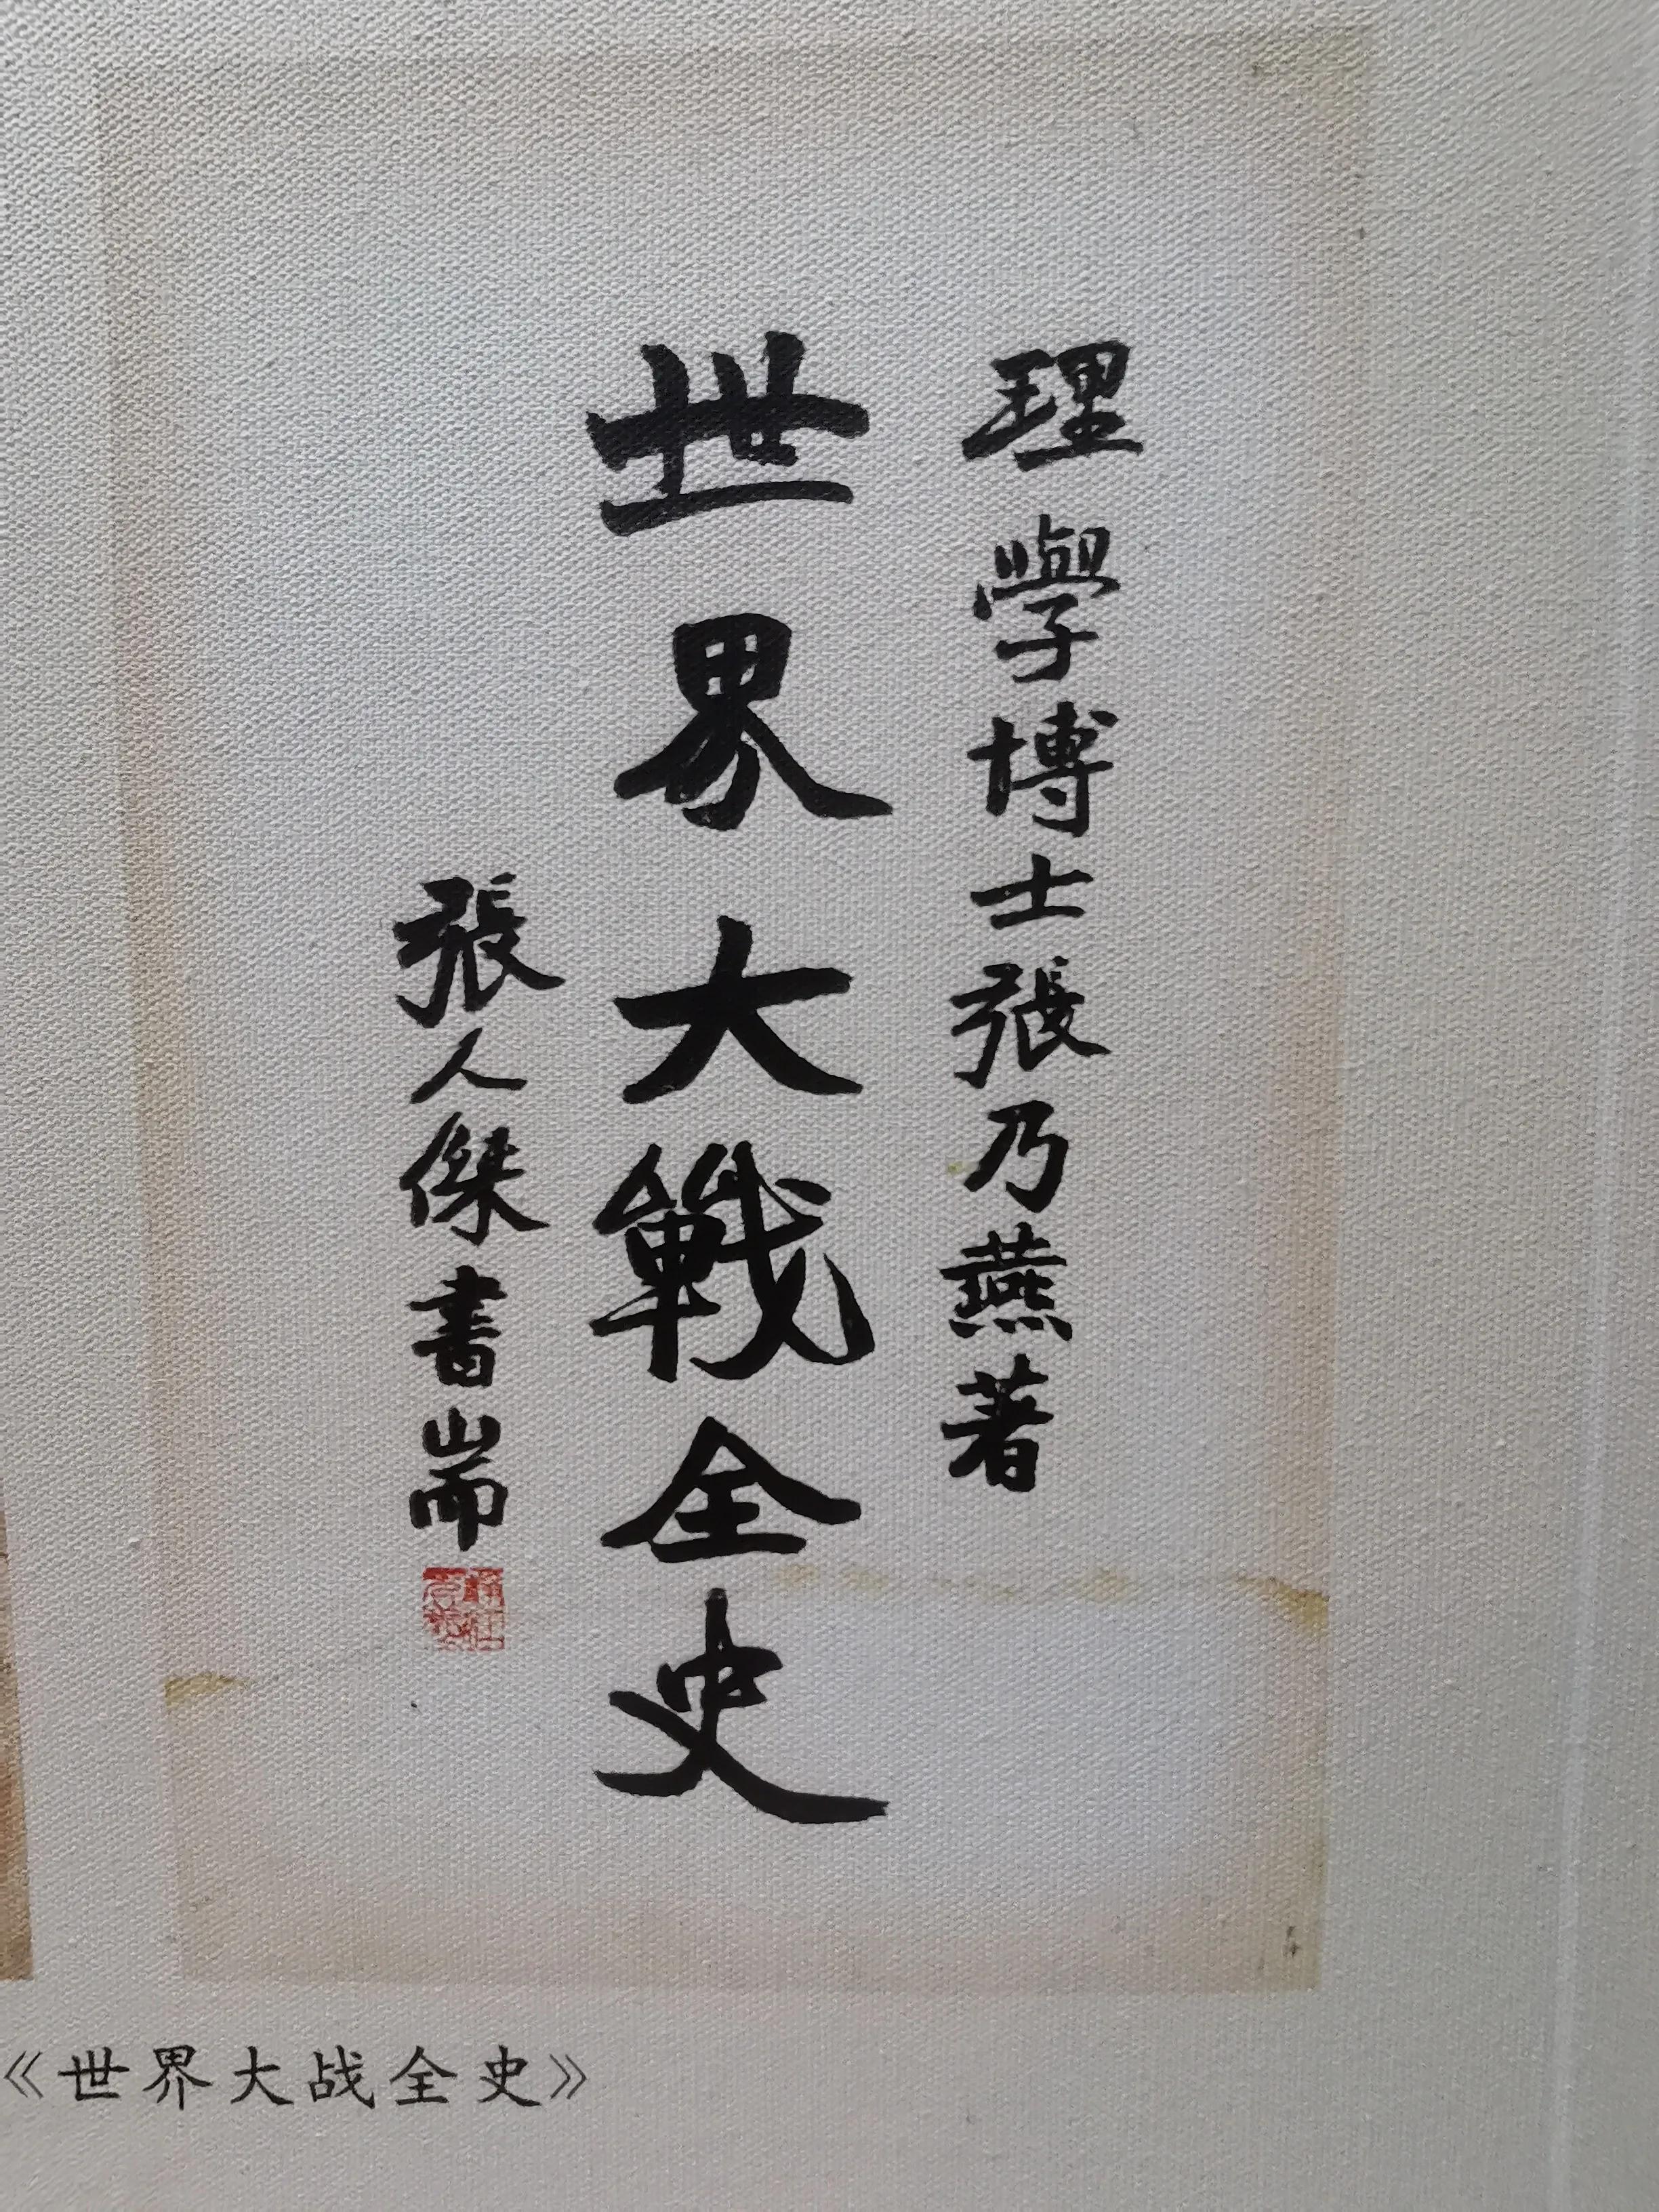 理學博士張乃燕著
世界大戰全史
張人傑書耑
《世界大战全史》